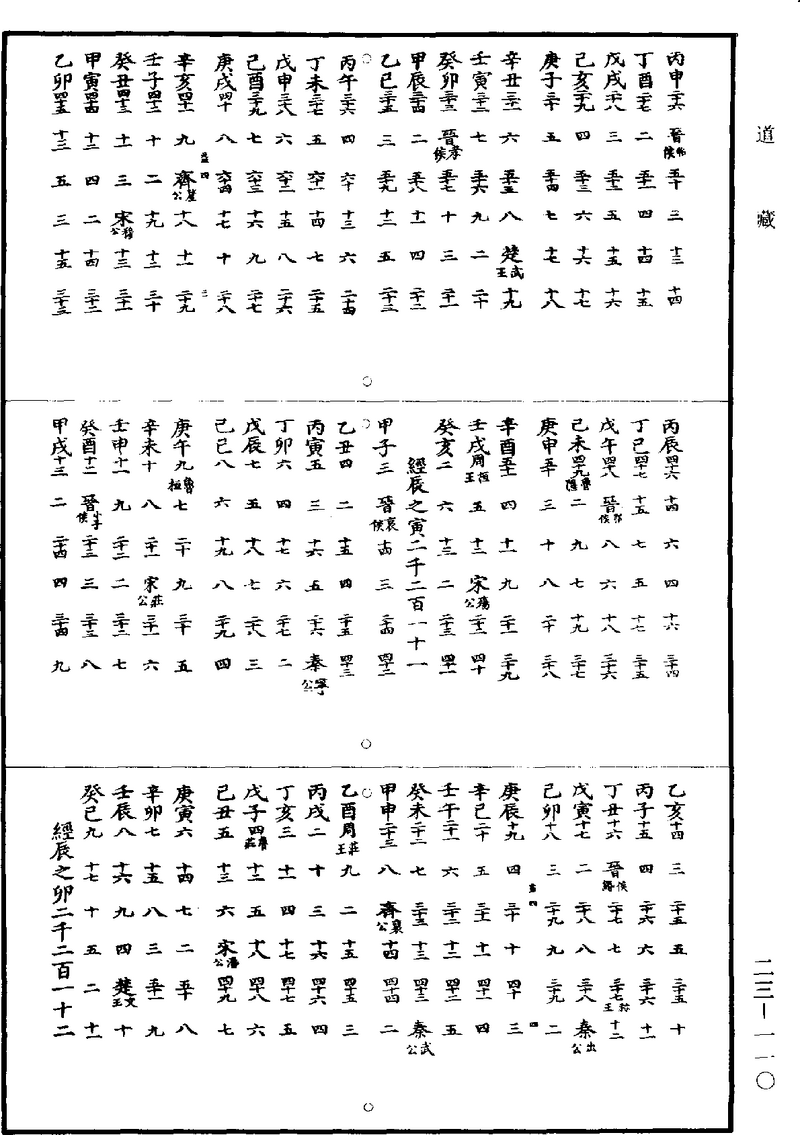 道藏
丙申 二十六 晉昭侯 五十 三 十三 十四
丁酉 二十七 二 五十一 四 十四 十五
戊戌 二十八 三 五十二 五 十五 十六
己亥 二十九 四 五十三 六 十六 十七
庚子 三十 五 五十四 七 十七 十八
辛丑 三十一 六 五十五 八 楚武王 十九
壬寅 三十二 七 五十六 九 二 二十
癸卯 三十三 晉孝侯 五十七 十 三 二十一
甲辰 三十四 二 五十八 十一 四 二十二
乙巳 三十五 三 五十九 十二 五 二十三
○
丙午 三十六 四 六十 十三 六 二十四
丁未 三十七 五 六十一 十四 七 二十五
戊申 三十八 六 六十二 十五 八 二十六
己酉 三十九 七 六十三 十六 九 二十七
庚戌 四十 八 六十四 十七 十 二十八
辛亥 四十一 九 齊釐公 十八 十一 二十九
壬子 四十二 十 二 十九 十二 三十
癸丑 四十三 十一 三 宋穆公 十三 三十一
甲寅 四十四 十二 四 二 十四 三十二
乙卯 四十五 十三 五 三 十五 三十三
丙辰 四十六 十四 六 四 十六 三十四
丁巳 四十七 十五 七 五 十七 三十五
戊午 四十八 晉鄂侯 八 六 十八 三十六
己未 四十九 魯隱 二 九 七 十九 三十七
庚申 五十 三 十 八 二十 三十八
辛酉 五十一 四 十一 九 二十一 三十九
壬戌 周桓王 五 十二 宋殤公 二十二 四十
癸亥 二 六 十三 二 二十三 四十一
經辰之寅二千二百一十一
甲子 三 晉哀侯 十四 三 二十四 四十二
○
乙丑 四 二 十五 四 二十五 四十三
丙寅 五 三 十六 五 二十六 秦寧公
丁卯 六 四 十七 六 二十七 二
戊辰 七 五 十八 七 二十八 三
己巳 八 六 十九 八 二十九 四
庚午 九 魯桓 七 二十 九 三十 五
辛未 十 八 二十一 宋莊公 三十一 六
壬申 十一 九 二十二 二 三十二 七
癸酉 十二 晉小子侯 二十三 三 三十三 八
甲戌 十三 二 二十四 四 三十四 九
乙亥 十四 三 二十五 五 三十五 十
丙子 十五 四 二十六 六 三十六 十一
丁丑 十六 晉侯緡 二十七 七 三十七 稱王 十二
戊寅 十七 二 二十八 八 三十八 秦出公
己卯 十八 三 二十九 九 三十九 二
庚辰 十九 四 三十 十 四十 三
辛巳 二十 五 三十一 十一 四十一 四
壬午 二十一 六 三十二 十二 四十二 五
癸未 二十二 七 三十三 十三 四十三 秦武公
甲申 二十三 八 齊襄公 十四 四十四 二
○
乙酉 周莊王 九 二 十五 四十五 三
丙戌 二 十 三 十六 四十六 四
丁亥 三 十一 四 十七 四十七 五
戊子 四 魯莊 十二 五 十八 四十八 六
己丑 五 十三 六 宋湣公 四十九 七
庚寅 六 十四 七 二 五十 八
辛卯 七 十五 八 三 五十一 九
壬辰 八 十六 九 四 楚文王 十
癸巳 九 十七 十 五 二 十一
經辰之卯二千二百一十二
二三—一一〇